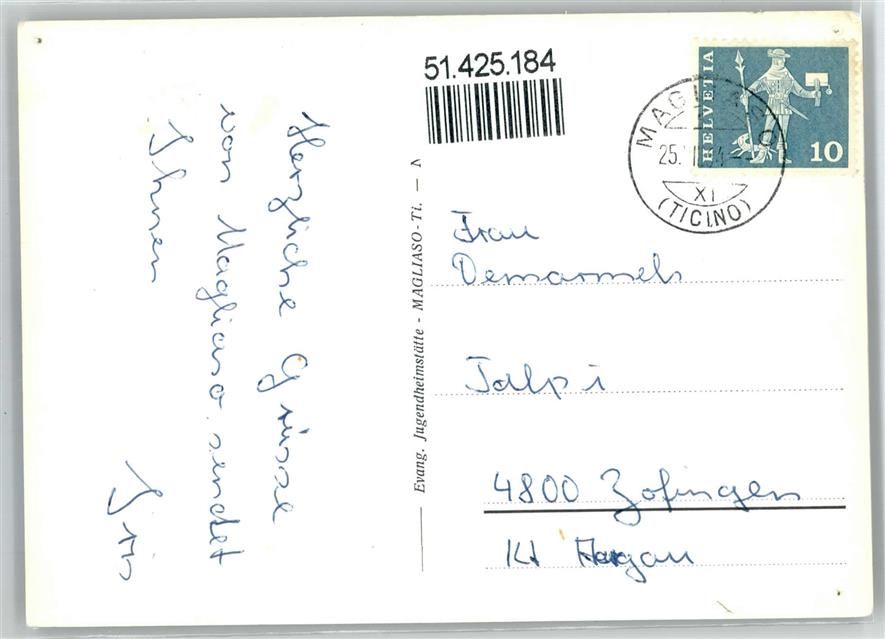 51.425.184
HELVETIA
10
MAGLIASO
25.
XI
(TICINO)
Herzliche Grüsse
von Magliaso sendet
Ihnen
Iris
Evang. Jugendheimstätte - MAGLIASO-Ti.
Frau
Demarmels
Talpi
4800 Zofingen
Kt Aargau